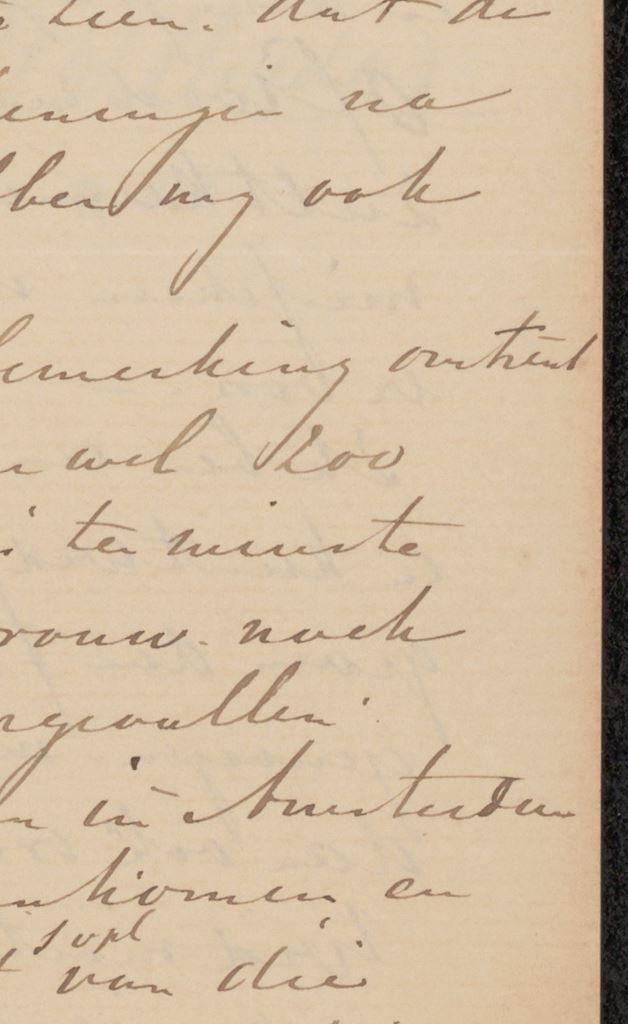 zien. dat de
eeningen na
bben mij ook
bemerking omtrent
wel 200
ten minste
rouw. noch
rgevallen.
in Amsterdam
nkomen, en
van die